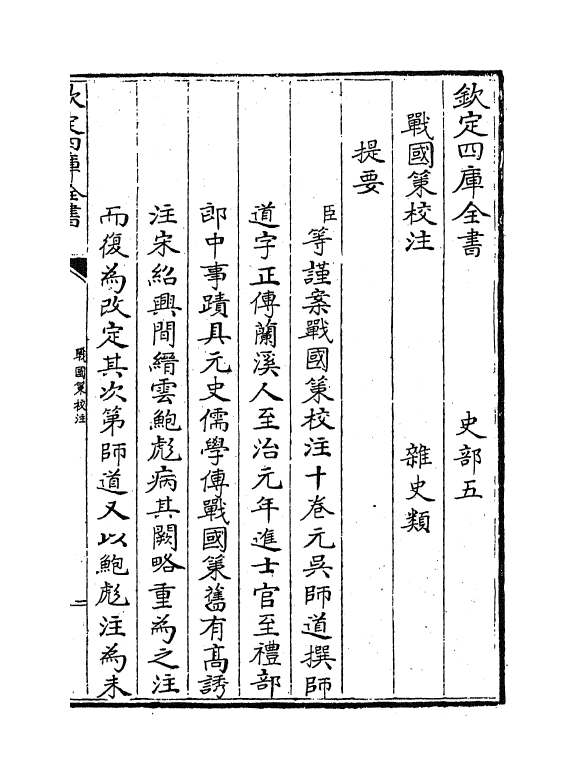 欽定四庫全書　史部五
戰國策校注　雜史類
提要
臣等謹案戰國策校注十卷元吳師道撰師
道字正傳蘭溪人至治元年進士官至禮部
郎中事蹟具元史儒學傳戰國策舊有高誘
注宋紹興間縉雲鮑彪病其闕略重為之注
而復為改定其次第師道又以鮑彪注為未
欽定四庫全書
戰國策校注